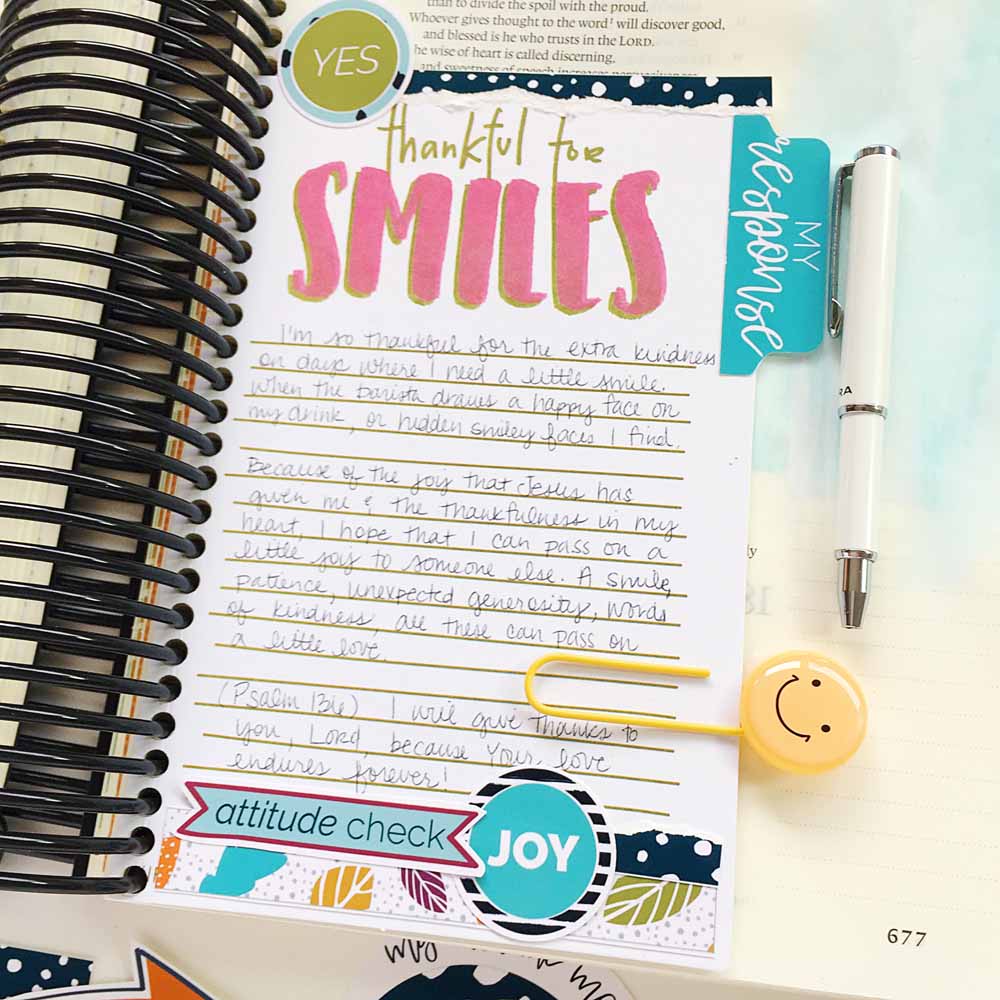 than to divide the spoil with the proud.
Whoever gives thought to the word will discover good,
and blessed is he who trusts in the LORD.
he wise of heart is called discerning,
and sweetness of speech increases persuasiveness
YES
thankful for
SMILES
MY
response
I'm so thankful for the extra kindness
on days where I need a little smile.
When the barista draws a happy face on
my drink, or hidden smiley faces I find.
Because of the joy that Jesus has
given me & the thankfulness in my
heart, I hope that I can pass on a
little joy to someone else. A smile,
patience, unexpected generosity, words
of kindness, all these can pass on
a little love.
(Psalm 136) I will give thanks to
you, Lord, because Your love
endures forever!
attitude check
JOY
RA
ly
677